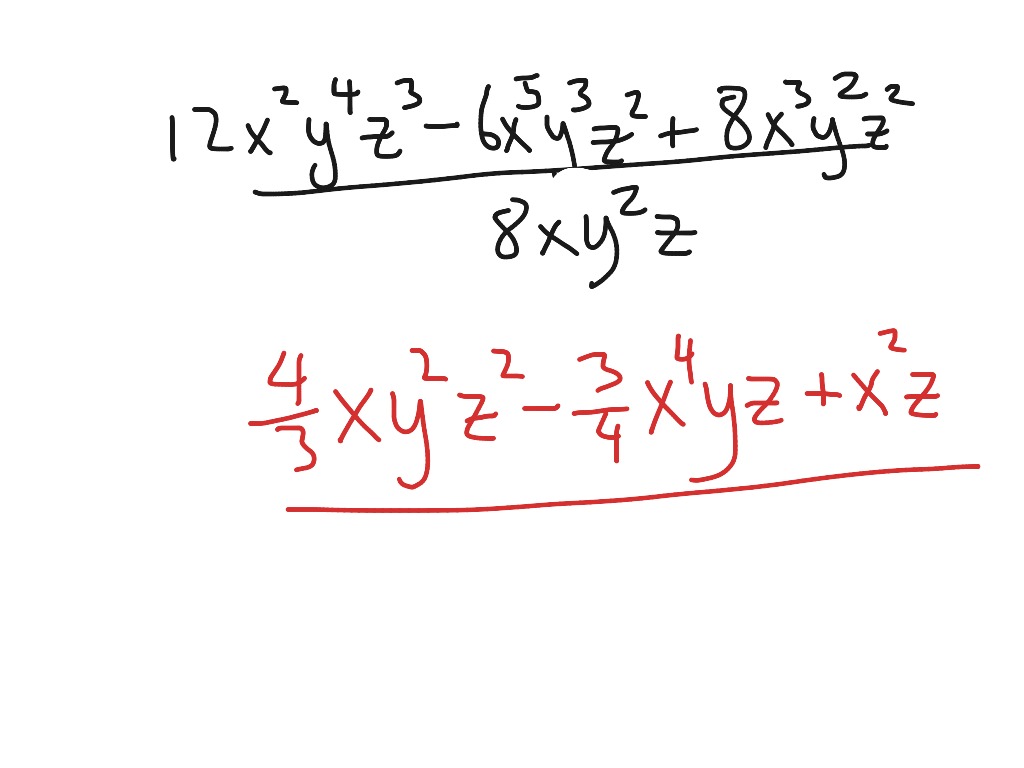 12x²y⁴z³ - 6x⁵y³z² + 8x³y²z²
8xy²z
4/3 xy²z² - 3/4 x⁴yz + x²z